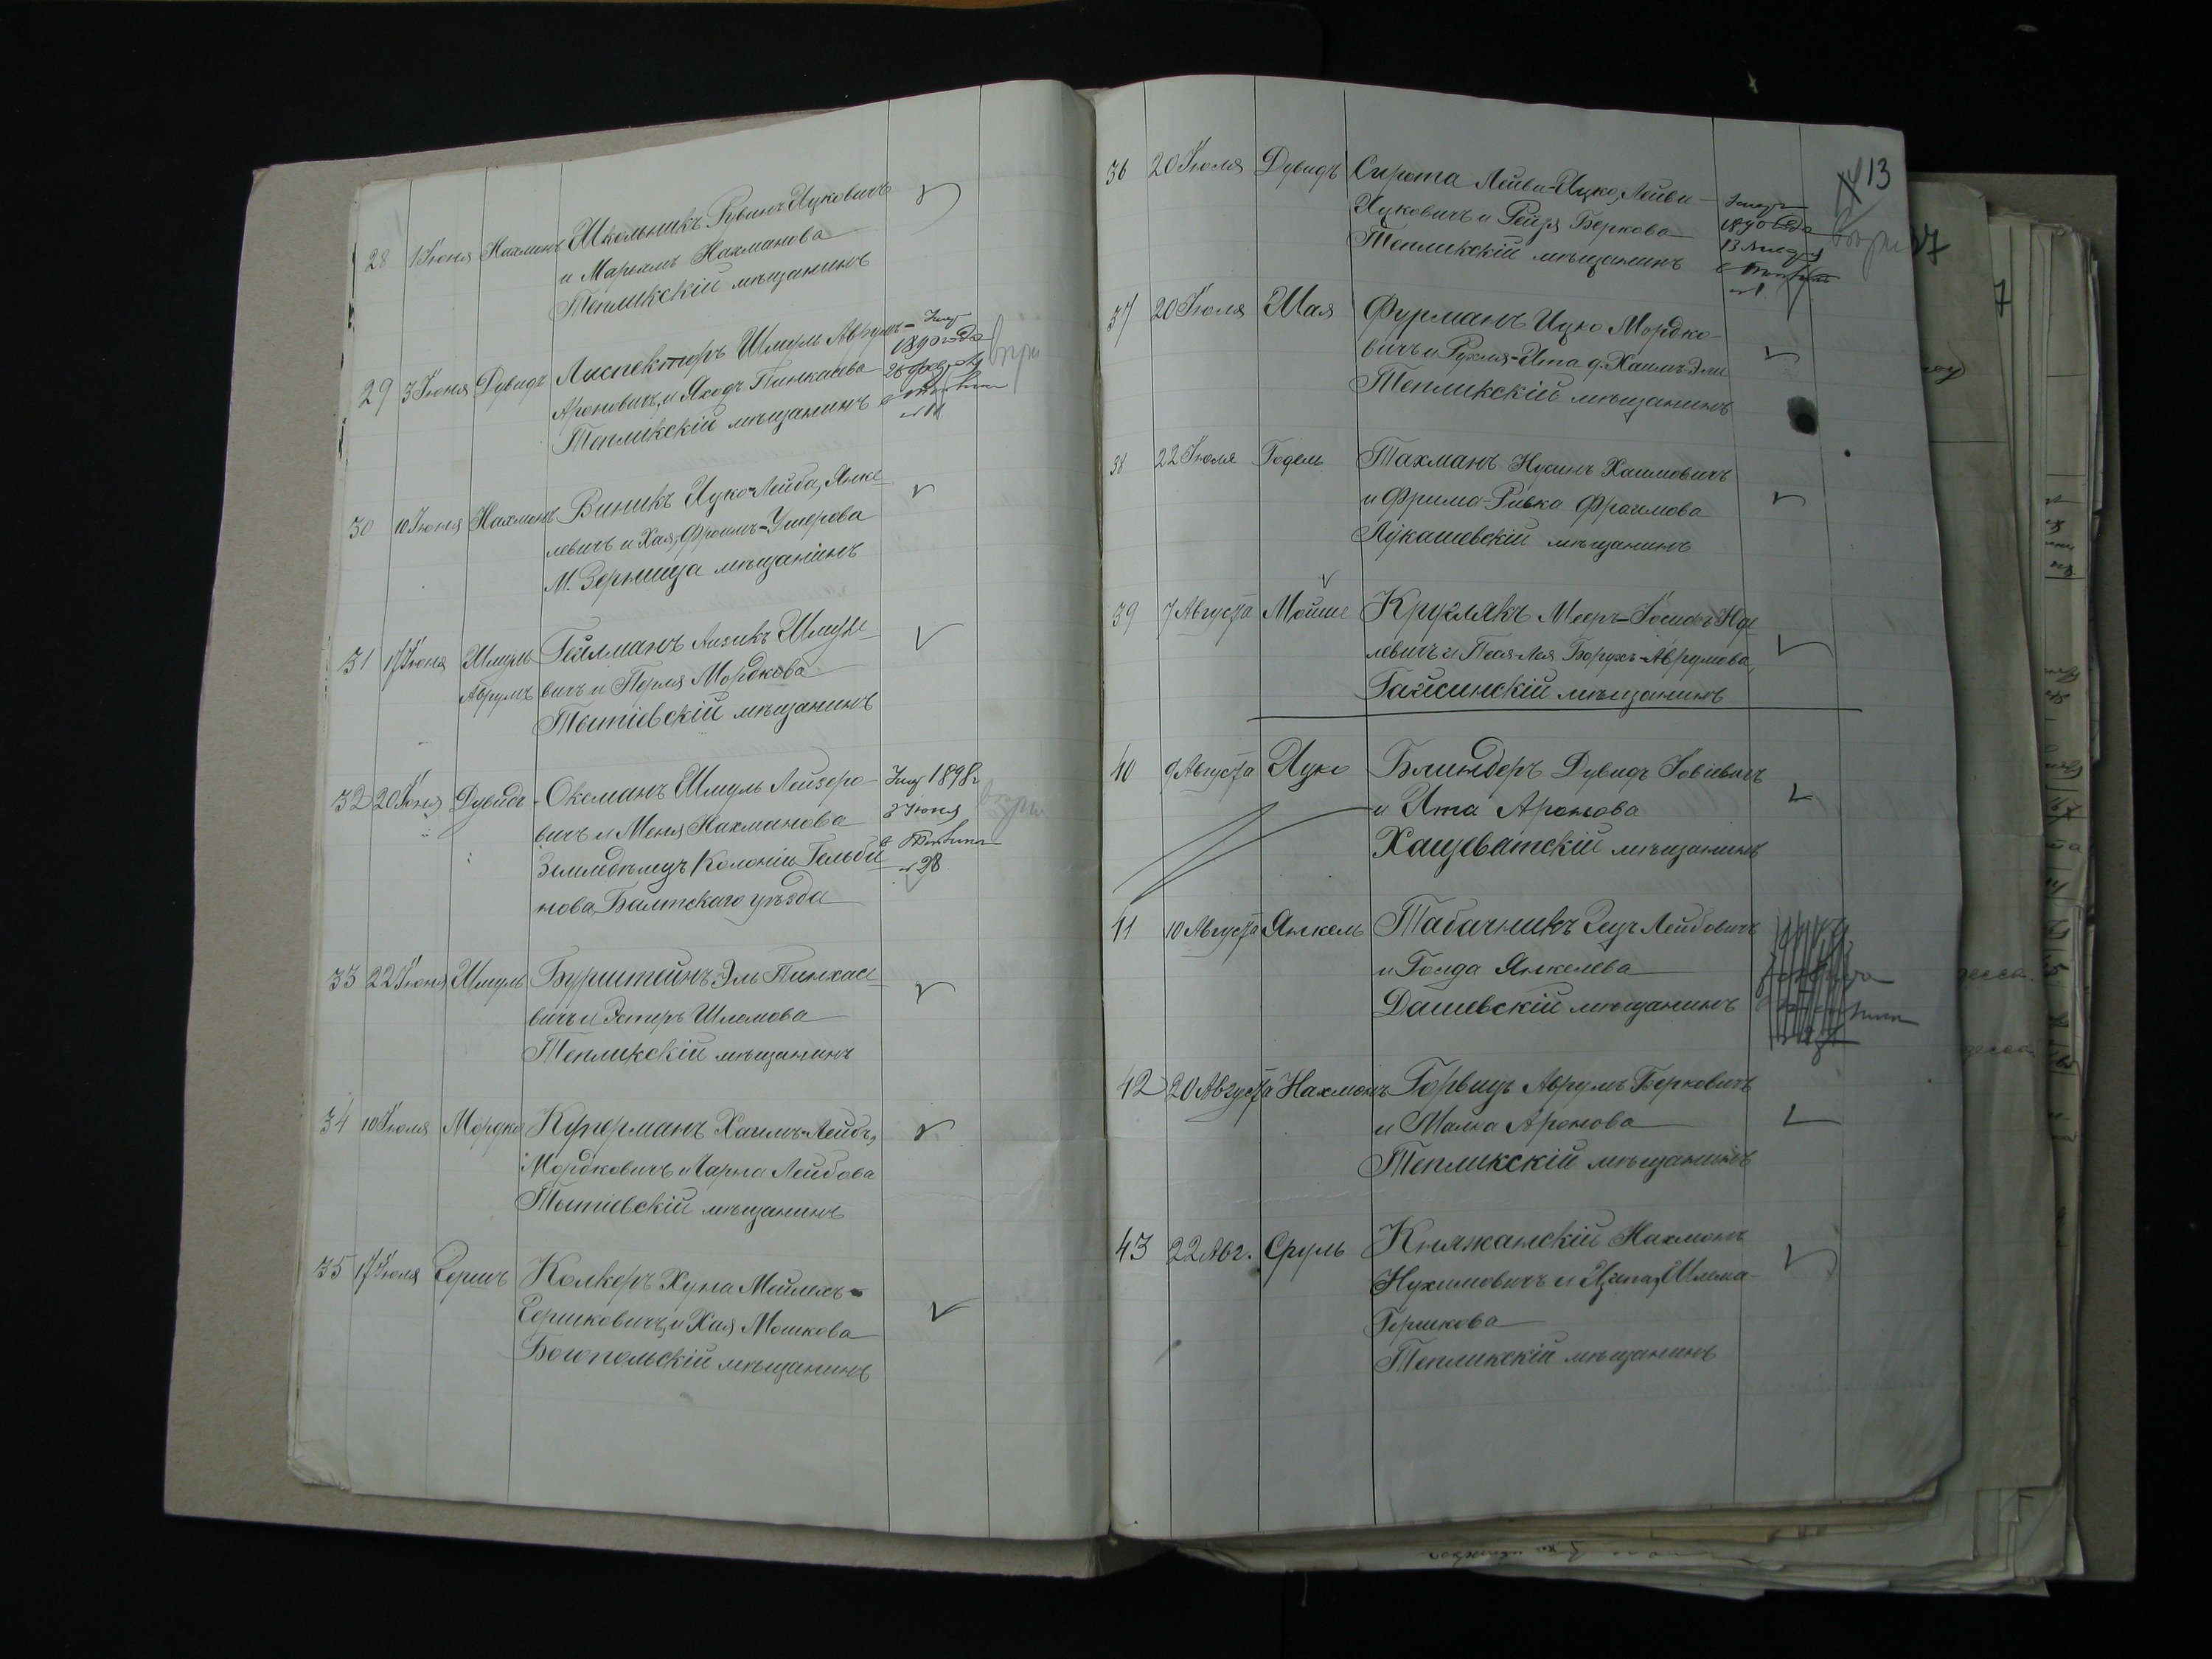 28 1 Іюня Нахманъ Школьникъ Рувинъ Ицковичъ
и Маріямъ Нахманова
Тепликскій мѣщанинъ
29 3 Іюня Дувидъ Инспекторъ Шмуль Аврумъ-
Ароновичъ, и Пинкасова
Тепликскій мѣщанинъ
1890 года
30 10 Іюня Нахманъ Виникъ Ицко-Лейба, Янке
левичъ и Хая, Фроимъ-Ушерова
М. Терновица мѣщанинъ
31 17 Іюня Шмуль Гейлманъ Аизикъ Шмуле
Аврумъ вичъ и Перля Мордкова
Тетіевскій мѣщанинъ
32 20 Іюня Дувидъ Оксманъ Шмуль Лейзеро
вичъ и Меня Нахманова
Земледѣлецъ Колоніи Гельби
нова, Балтскаго уѣзда
1898 г
8 Іюня
28
33 22 Іюня Шмуль Бурштейнъ Эль Пинхасе
вичъ и Эстеръ Шлемова
Тепликскій мѣщанинъ
34 10 Іюля Мордко Куперманъ Хаимъ-Лейбъ,
Мордковичъ и Чарна Лейбова
Тетіевскій мѣщанинъ
35 17 Іюля Гершъ Колкеръ Хуна Мейлехъ-
Гершковичъ, и Хая Мошкова
Богопольскій мѣщанинъ
13
36 20 Іюля Дувидъ Сирота Лейви-Ицко, Лейви-
Ицковичъ и Рейзя Беркова
Тепликскій мѣщанинъ
1890 года
37 20 Іюля Шая Фурманъ Ицко Мордко-
вичъ и Рухля-Ита д. Хаимъ Эли
Тепликскій мѣщанинъ
38 22 Іюля Годель Тахманъ Нусинъ Хаимовичъ
и Фрима-Ривка Фроимова
Лукашевскій мѣщанинъ
39 7 Августа Мойше Круглякъ Мееръ-Іосифъ
левичъ и Песя-Лея Борухъ-Аврумова,
Гайсинскій мѣщанинъ
40 9 Августа Ицко Блиндеръ Дувидъ Товіевичъ
и Ита Аронова
Хащеватскій мѣщанинъ
41 10 Августа Янкель Табачникъ Лейбовичъ
и Голда Янкелева
Дашевскій мѣщанинъ
42 20 Августа Нахманъ Горвицъ Аврумъ Берковичъ
и Малка Аронова
Тепликскій мѣщанинъ
43 22 Авг. Сруль Княжанскій Нахманъ
Нухимовичъ и Ципа, Шлема-
Гершкова
Тепликскій мѣщанинъ